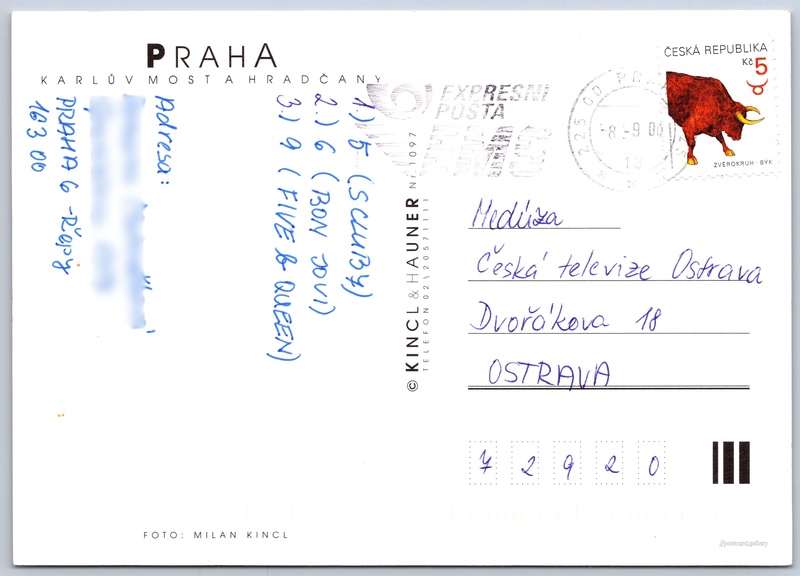 PRAHA
KARLŮV MOST A HRADČANY
Adresa:
PRAHA 6 - Řepy
163 00
1.) 5 (SCLUBY)
2.) 6 (BON JOVI)
3.) 9 (FIVE & QUEEN)
© KINCL & HAUNER Nr. 1097
TELEFON 02 \ 20571111
EXPRESNÍ
POŠTA
EMS
225 00 PRA
-8.-9 00
ČESKÁ REPUBLIKA
Kč 5
ZVĚROKRUH - BÝK
Medúza
Česká televize Ostrava
Dvořákova 18
OSTRAVA
7 2 9 2 0
FOTO: MILAN KINCL
//postcard.gallery